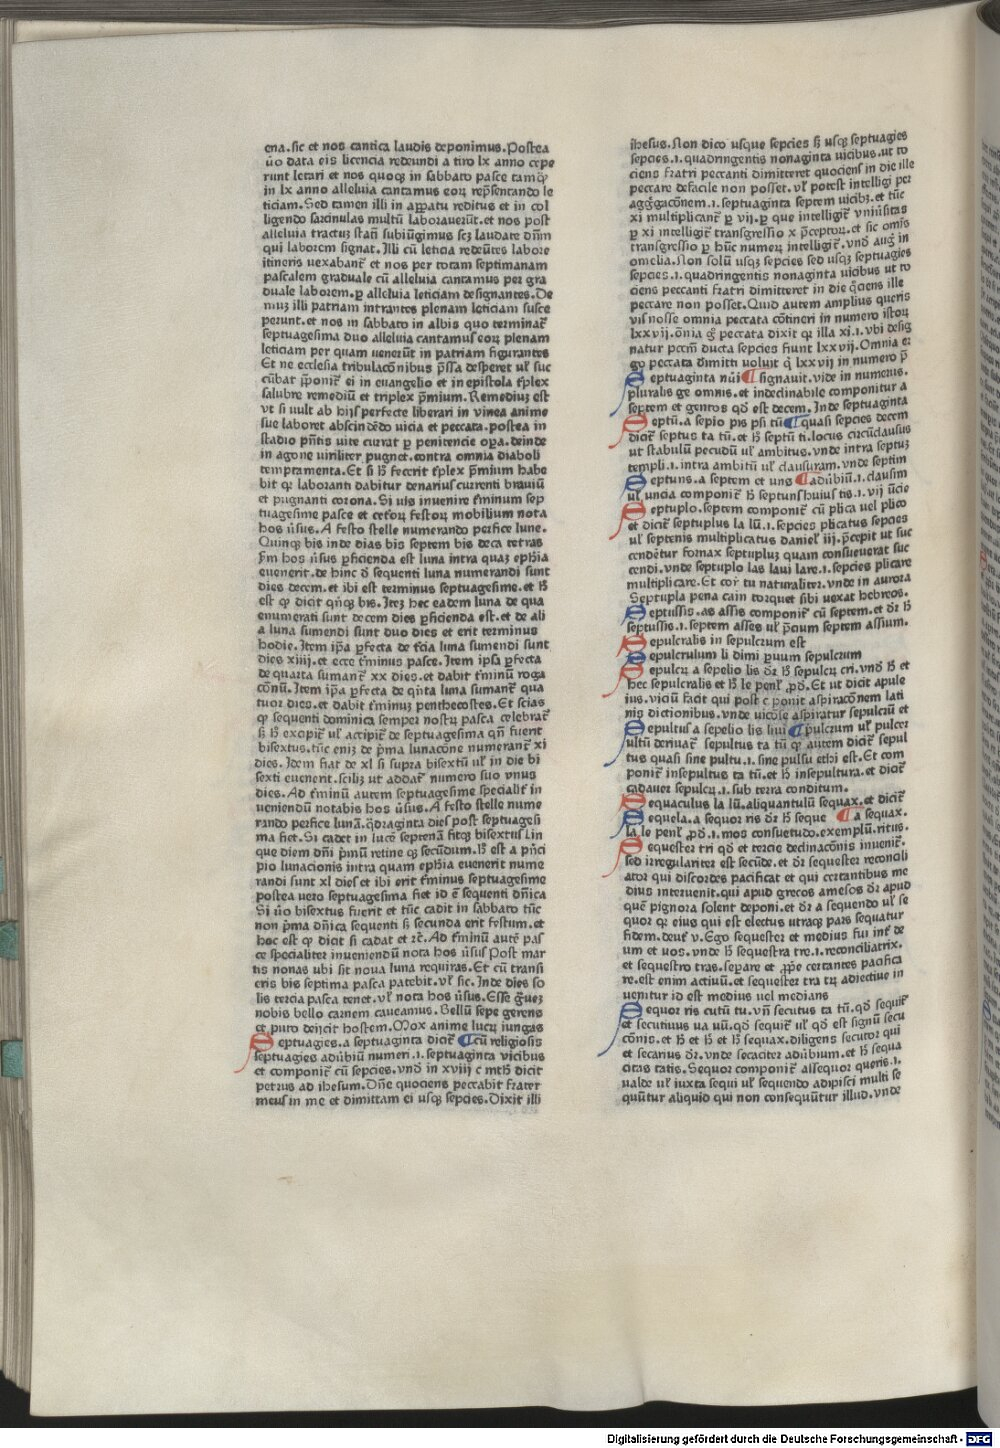 ena.sic et nos cantica laudis deponimus.Postea
ũo data eis licencia redeundi a tiro lx anno cepe
runt letari et nos quoqꝫ in sabbato pasce tamqͣ
in lx anno alleluia cantamus eoꝝ rep̃sentando le
ticiam.Sed tamen illi in apꝑatu reditus et in col
ligendo sarcinulas multũ laborauerũt.et nos post
alleluia tractus statĩ subiũgimus scꝫ laudate dñm
qui laborem signat.Illi cũ leticia redeũtes labore
itineris uexabant᷑ et nos per totam septimanam
pascalem graduale cũ alleluia cantamus per gra
duale laborem.ꝑ alleluia leticiam designantes.De
muꝫ illi patriam intrantes plenam leticiam susce
perunt.et nos in sabbato in albis quo terminat᷑
septuagesima duo alleluia cantamus eoꝝ plenam
leticiam per quam uenerũt in patriam figurantes
Et ne ecclesia tribulacõnibus p̃ssa desperet ul᷑ suc
cũbat ꝓponit᷑ ei in euangelio et in epistola t᷑plex
salubre remediũ et triplex p̃mium.Remediuꝫ est
vt si uult ab hijs perfecte liberari in vinea anime
sue laboret abscindẽdo uicia et peccata.postea in
stadio pñtis uite currat ꝑ penitencie oꝑa.deinde
in agone uiriliter pugnet.contra omnia diaboli
temptamenta.Et si h̃ fecerit t᷑plex p̃mium habe
bit qꝛ laboranti dabitur denarius currenti brauiũ
et pugnanti corona.Si uis inuenire t᷑minum sep
tuagesime pasce et ceteroꝝ festoꝝ mobilium nota
hos ũsus.A festo stelle numerando perfice lune.
Quinqꝫ bis inde dias bis septem bis deca tetras
Fm hos ũsus ꝑficienda est luna intra quaꝫ ephĩa
euenerit.de hinc d̃ sequenti luna numerandi sunt
dies decem.et ibi est terminus septuagesime.et h̃
est ꝙ dicit qñqꝫ bis.Iteꝫ hec eadem luna de qua
enumerati sunt decem dies ꝑficienda est.et de ali
a luna sumendi sunt duo dies et erit terminus
hodie.Item ip̃a ꝑfecta de t᷑cia luna sumendi sunt
dies xiiij.et ecce t᷑minus pasce.Item ipsa ꝑfecta
de quarta sumant᷑ xx dies.et dabit t᷑minũ roga
cõnũ.Item ip̃a ꝑfecta de qͥnta luna sumant᷑ qua
tuor dies.et dabit t᷑minuꝫ penthecostes.Et scias
ꝙ sequenti dominica semper nostꝝ pasca celebrat᷑
si h̃ excipit᷑ ul᷑ accipit᷑ de septuagesima qñ fuerit
bisextus.tũc eniꝫ de p̃ma lunacõne numerant᷑ xi
dies.Idem fiat de xl si supra bisextũ ul᷑ in die bi
sexti euenerit.sciliꝫ ut addat᷑ numero suo vnus
dies.Ad t᷑minũ autem septuagesime specialit᷑ in
ueniendũ notabis hos ũsus.A festo stelle nume
rando perfice lunã.qͣdraginta dies post septuagesi
ma fiet.Si cadet in luce septenã fitqꝫ bisextus Lin
que diem dñi p̃mũ retine qꝫ secũdum.H̃ est a pͥnci
pio lunacionis intra quam ephĩa euenerit nume
randi sunt xl dies et ibi erit t᷑minus septuagesime
postea uero septuagesima fiet id ẽ sequenti dñica
Si ũo bisextus fuerit et tũc cadit in sabbato tũc
non p̃ma dñica sequenti si secunda erit festum.et
hoc est ꝙ dicit si cadat et rc̃.Ad t᷑minũ autẽ pas
ce specialiter inueniendũ nota hos ũsus Post mar
tis nonas ubi sit noua luna requiras.Et cũ transi
eris bis septima pasca patebit.ul᷑ sic.Inde dies so
lis tercia pasca tenet.vl᷑ nota hos ũsus.Esse g̃ueꝫ
nobis bello carnem caueamus.Bellũ sepe gerens
et puro deijcit hostem.Mox anime lucꝝ iungas
Septuagies.a septuaginta dicit᷑ ¶cũ religiosis
septuagies adũbiũ numeri.ı.septuaginta vicibus
et componit᷑ cũ sepcies.vnd̃ in xviij c mth̃ dicit
petrus ad ihesum.Dñe quociens peccabit frater
meus in me et dimittam ei usqꝫ sepcies.Dixit illi
ihesus.Non dico usque sepcies s̃ usqꝫ septuagies
sepcies.ı.quadringentis nonaginta uicibus.ut to
ciens fratri peccanti dimitteret quociens in die ille
peccare defacile non posset.ul᷑ potest intelligi per
agg̃gacõnem.ı.septuaginta septem uicibꝫ.et tũc
xi multiplicant᷑ ꝑ vij.ꝑ que intelligit᷑ vniũsitas
ꝑ xi intelligit᷑ transgressio x p̃ceptoꝝ.et sic om̃is
transgressio ꝑ hũc numeꝝ intelligit᷑.vnd̃ aug̃ in
omelia.Non solũ usqꝫ sepcies sed usqꝫ septuagies
sepcies.ı.quadringentis nonaginta uicibus ut to
ciens peccanti fratri dimitteret in die qͦciens ille
peccare non posset.Quid autem amplius queris
vis nosse omnia peccata cõtineri in numero istoꝝ
lxxvij.õnia qͥ peccata dixit qꝛ illa xi.ı.vbi desig
natur pccm̃ ducta sepcies fiunt lxxvij.Omnia er
go peccata dimitti uoluit qͥ lxxvij in numero p̃
Septuaginta nũi ¶signauit.vide in numerus.
pluralis ge omnis.et indeclinabile componitur a
septem et gentos qd̃ est decem.Inde septuaginta
Septũ.a sepio pis psi tũ ¶quasi sepcies decem
dicit᷑ septus ta tũ.et h̃ septũ ti.locus circũclausus
ut stabulũ pecudũ ul᷑ ambitus.vnde intra septuꝫ
templi.ı.intra ambitũ ul᷑ clausuram.vnde septim
Septuns.a septem et uns ¶adũbiũ.ı.clausim
ul᷑ uncia componit᷑ h̃ septuns huius tis.ı.vij ũcie
Septuplo.septem componit᷑ cũ plica uel plico
et dicit᷑ septuplus la lũ.ı.sepcies plicatus sepcies
ul᷑ septenis multiplicatus daniel᷑ iij.p̃cepit ut suc
cendẽtur fornax septupluꝫ quam consueuerat suc
cendi.vnde septuplo las laui lare.ı.sepcies plicare
multiplicare.Et cor᷑ tu naturaliter.vnde in aurora
Septupla pena cain torquet sibi uexat hebreos.
Septussis.as assis componit᷑ cũ septem.et dr̃ h̃
septussis.ı.septem asses ul᷑ p̃cium septem assium.
Sepulcralis in sepulcrum est
Sepulcrulum li dimi ꝑuum sepulcrum
Sepulcꝝ a sepelio lis dr̃ h̃ sepulcꝝ cri.vnd̃ h̃ et
hec sepulcralis et h̃ le penl᷑ ꝓd̃.Et ut dicit apule
ius.viciũ facit qui post c ponit aspiracõnem lati
nis dictionibus.vnde uicõse aspiratur sepulcrũ et
Sepultus a sepelio lis liui ¶pulcrum ul᷑ pulcer
ultũ deriuat᷑ sepultus ta tũ ꝙ autem dicit᷑ sepul
tus quasi sine pultu.ı.sine pulsu ethi est.Et com
ponit᷑ insepultus ta tũ.et h̃ insepultura.et dicit᷑
cadauer sepulcꝝ.ı.sub terra conditum.
Sequaculus la lũ.aliquantulũ sequax.et dicit᷑
Sequela.a sequor ris dr̃ h̃ seque ¶a sequax.
la le penl᷑ ꝓd̃.ı.mos consuetudo.exemplũ.ritus.
Sequester tri qd̃ et tercie declinacõnis inuenit᷑.
sed irregulariter est secũde.et dr̃ sequester reconcili
ator qui discordes pacificat et qui certantibus me
dius interuenit.qui apud grecos amesos dr̃ apud
quẽ pignora solent deponi.et dr̃ a sequendo ul᷑ se
quor qꝛ eius qui est electus utraqꝫ pars sequatur
fidem.deut᷑ v.Ego sequester et medius fui int᷑ de
um et uos.vnde h̃ sequestra tre.ı.reconciliatrix.
et sequestro tras.seꝑare et ꝓpe certantes pacifica
re.est enim actiuũ.et sequester tra tꝝ adiectiue in
uenitur id est medius uel medians
Sequor ris cutũ tu.vñ secutus ta tũ.qd̃ sequit᷑
et secutiuus ua uũ.qd̃ sequit᷑ ul᷑ qd̃ est signũ secu
cõnis.et h̃ et h̃ et h̃ sequax.diligens secutor qui
et secarius dr̃.vnde secaciter adũbium.et h̃ sequa
citas tatis.Sequor componit᷑ assequor queris.ı.
ualde ul᷑ iuxta sequi ul᷑ sequendo adipisci multi se
quũtur aliquid qui non consequũtur illud.vnde
Digitalisierung gefördert durch die Deutsche Forschungsgemeinschaft - DFG